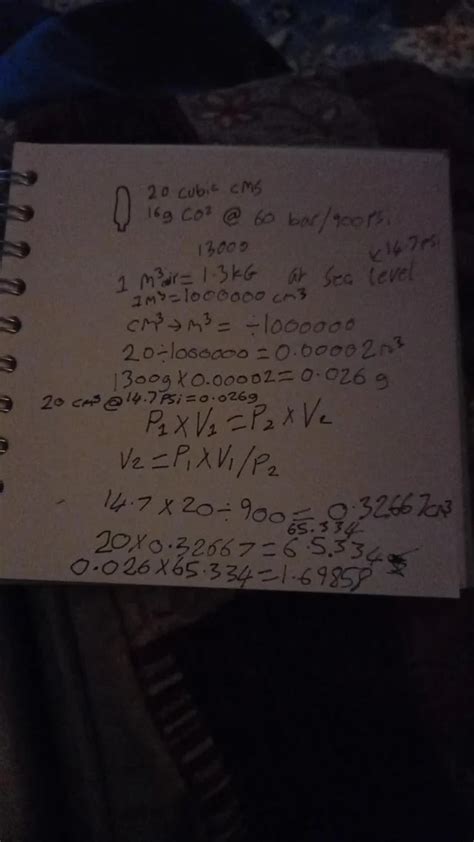 20 cubic cms
16g CO² @ 60 bar/900psi
13000
1 m³ air = 1.3kG at Sea level 14.7 PSi
1M³=1000000 cm³
cm³→m³=÷1000000
20÷1000000=0.00002m³
1300g×0.00002=0.026g
20 cm³@14.7PSi=0.026g
P₁×V₁=P₂×V₂
V₂=P₁×V₁/P₂
14.7×20÷900=0.32667cm³
65.334
20×0.32667=6.5.334
0.026×65.334=1.69858